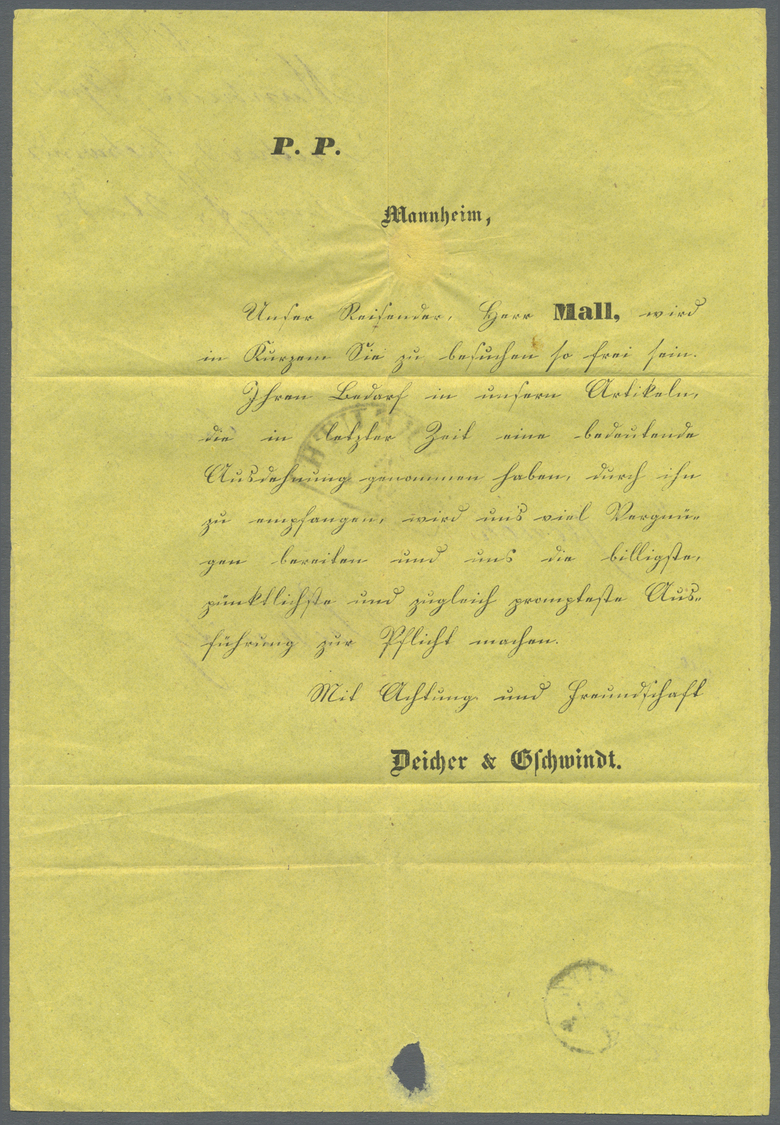 P. P.
Mannheim,
Unser Reisender, Herr Mall, wird
in Kurzem Sie zu besuchen so frei sein.
Ihren Bedarf in unsern Artikeln,
die in letzter Zeit eine bedeutende
Ausdehnung genommen haben, durch ihn
zu empfangen, wird uns viel Vergnü-
gen bereiten und uns die billigste,
pünktlichste und zugleich prompteste Aus-
führung zur Pflicht machen.
Mit Achtung und Freundschaft
Deicher & Gschwindt.